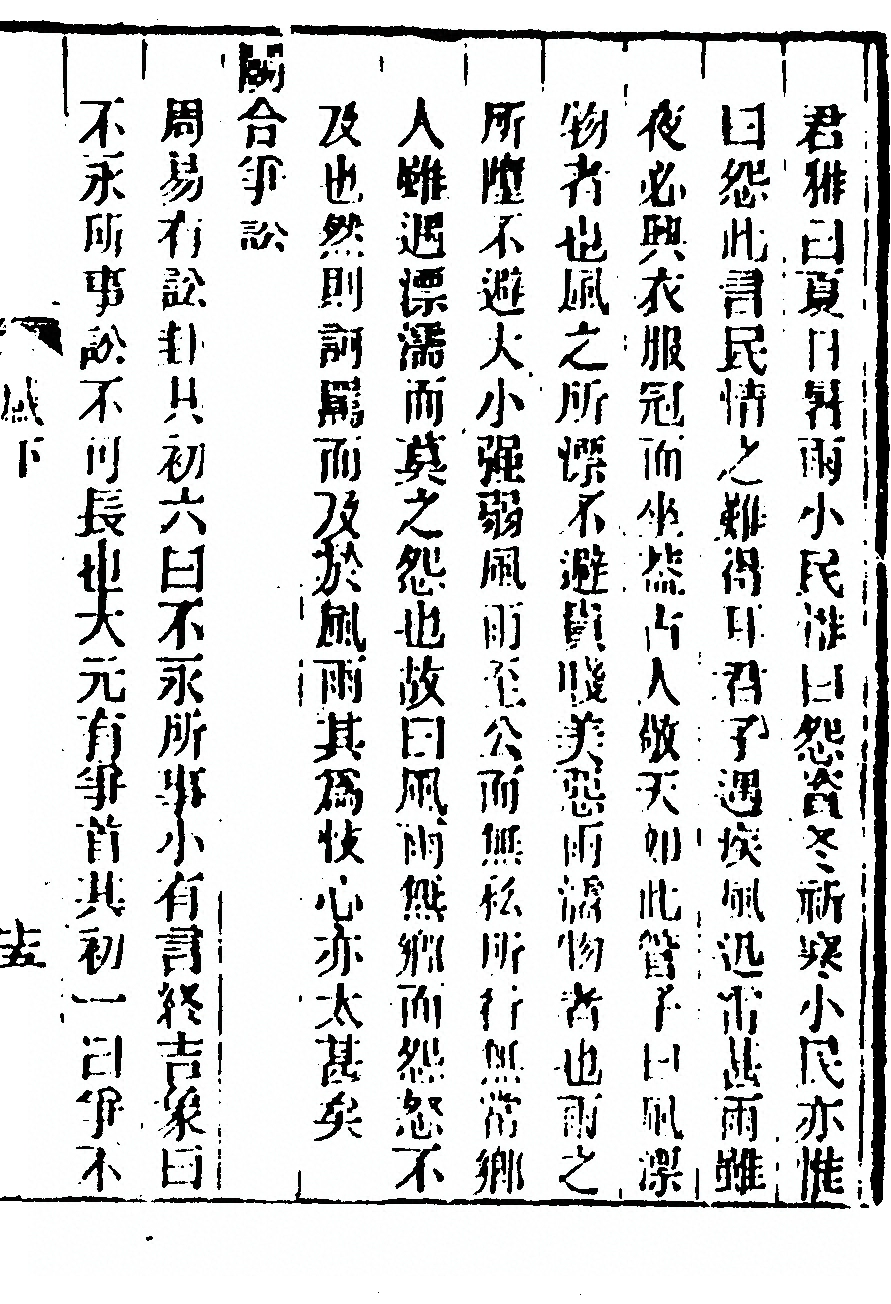 君雅曰夏日暑雨小民惟曰怨咨冬祈寒小民亦惟
曰怨此言民情之難得耳君子遇疾風迅雷甚雨雖
夜必興衣服冠而坐蓋古人敬天如此管子曰風漂
物者也風之所漂不避貴賤美惡雨濡物者也雨之
所墮不避大小强弱風雨至公而無私所行無常鄉
人雖遇漂濡而莫之怨也故曰風雨無鄉而怨怒不
及也然則訶罵而及於風雨其爲忮心亦太甚矣
鬭合爭訟
周易有訟卦其初六曰不永所事小有言終吉象曰
不永所事訟不可長也大元有爭首其初一曰爭不
戒下
十五